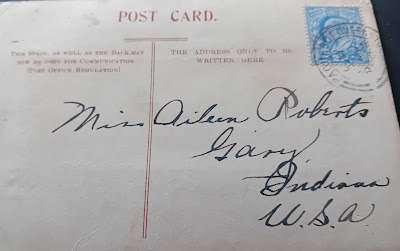 POST CARD.
THIS SPACE, AS WELL AS THE BACK, MAY
NOW BE USED FOR COMMUNICATION
(POST OFFICE REGULATION)
THE ADDRESS ONLY TO BE
WRITTEN HERE
Miss Aileen Roberts
Gary
Indiana
U.S.A.